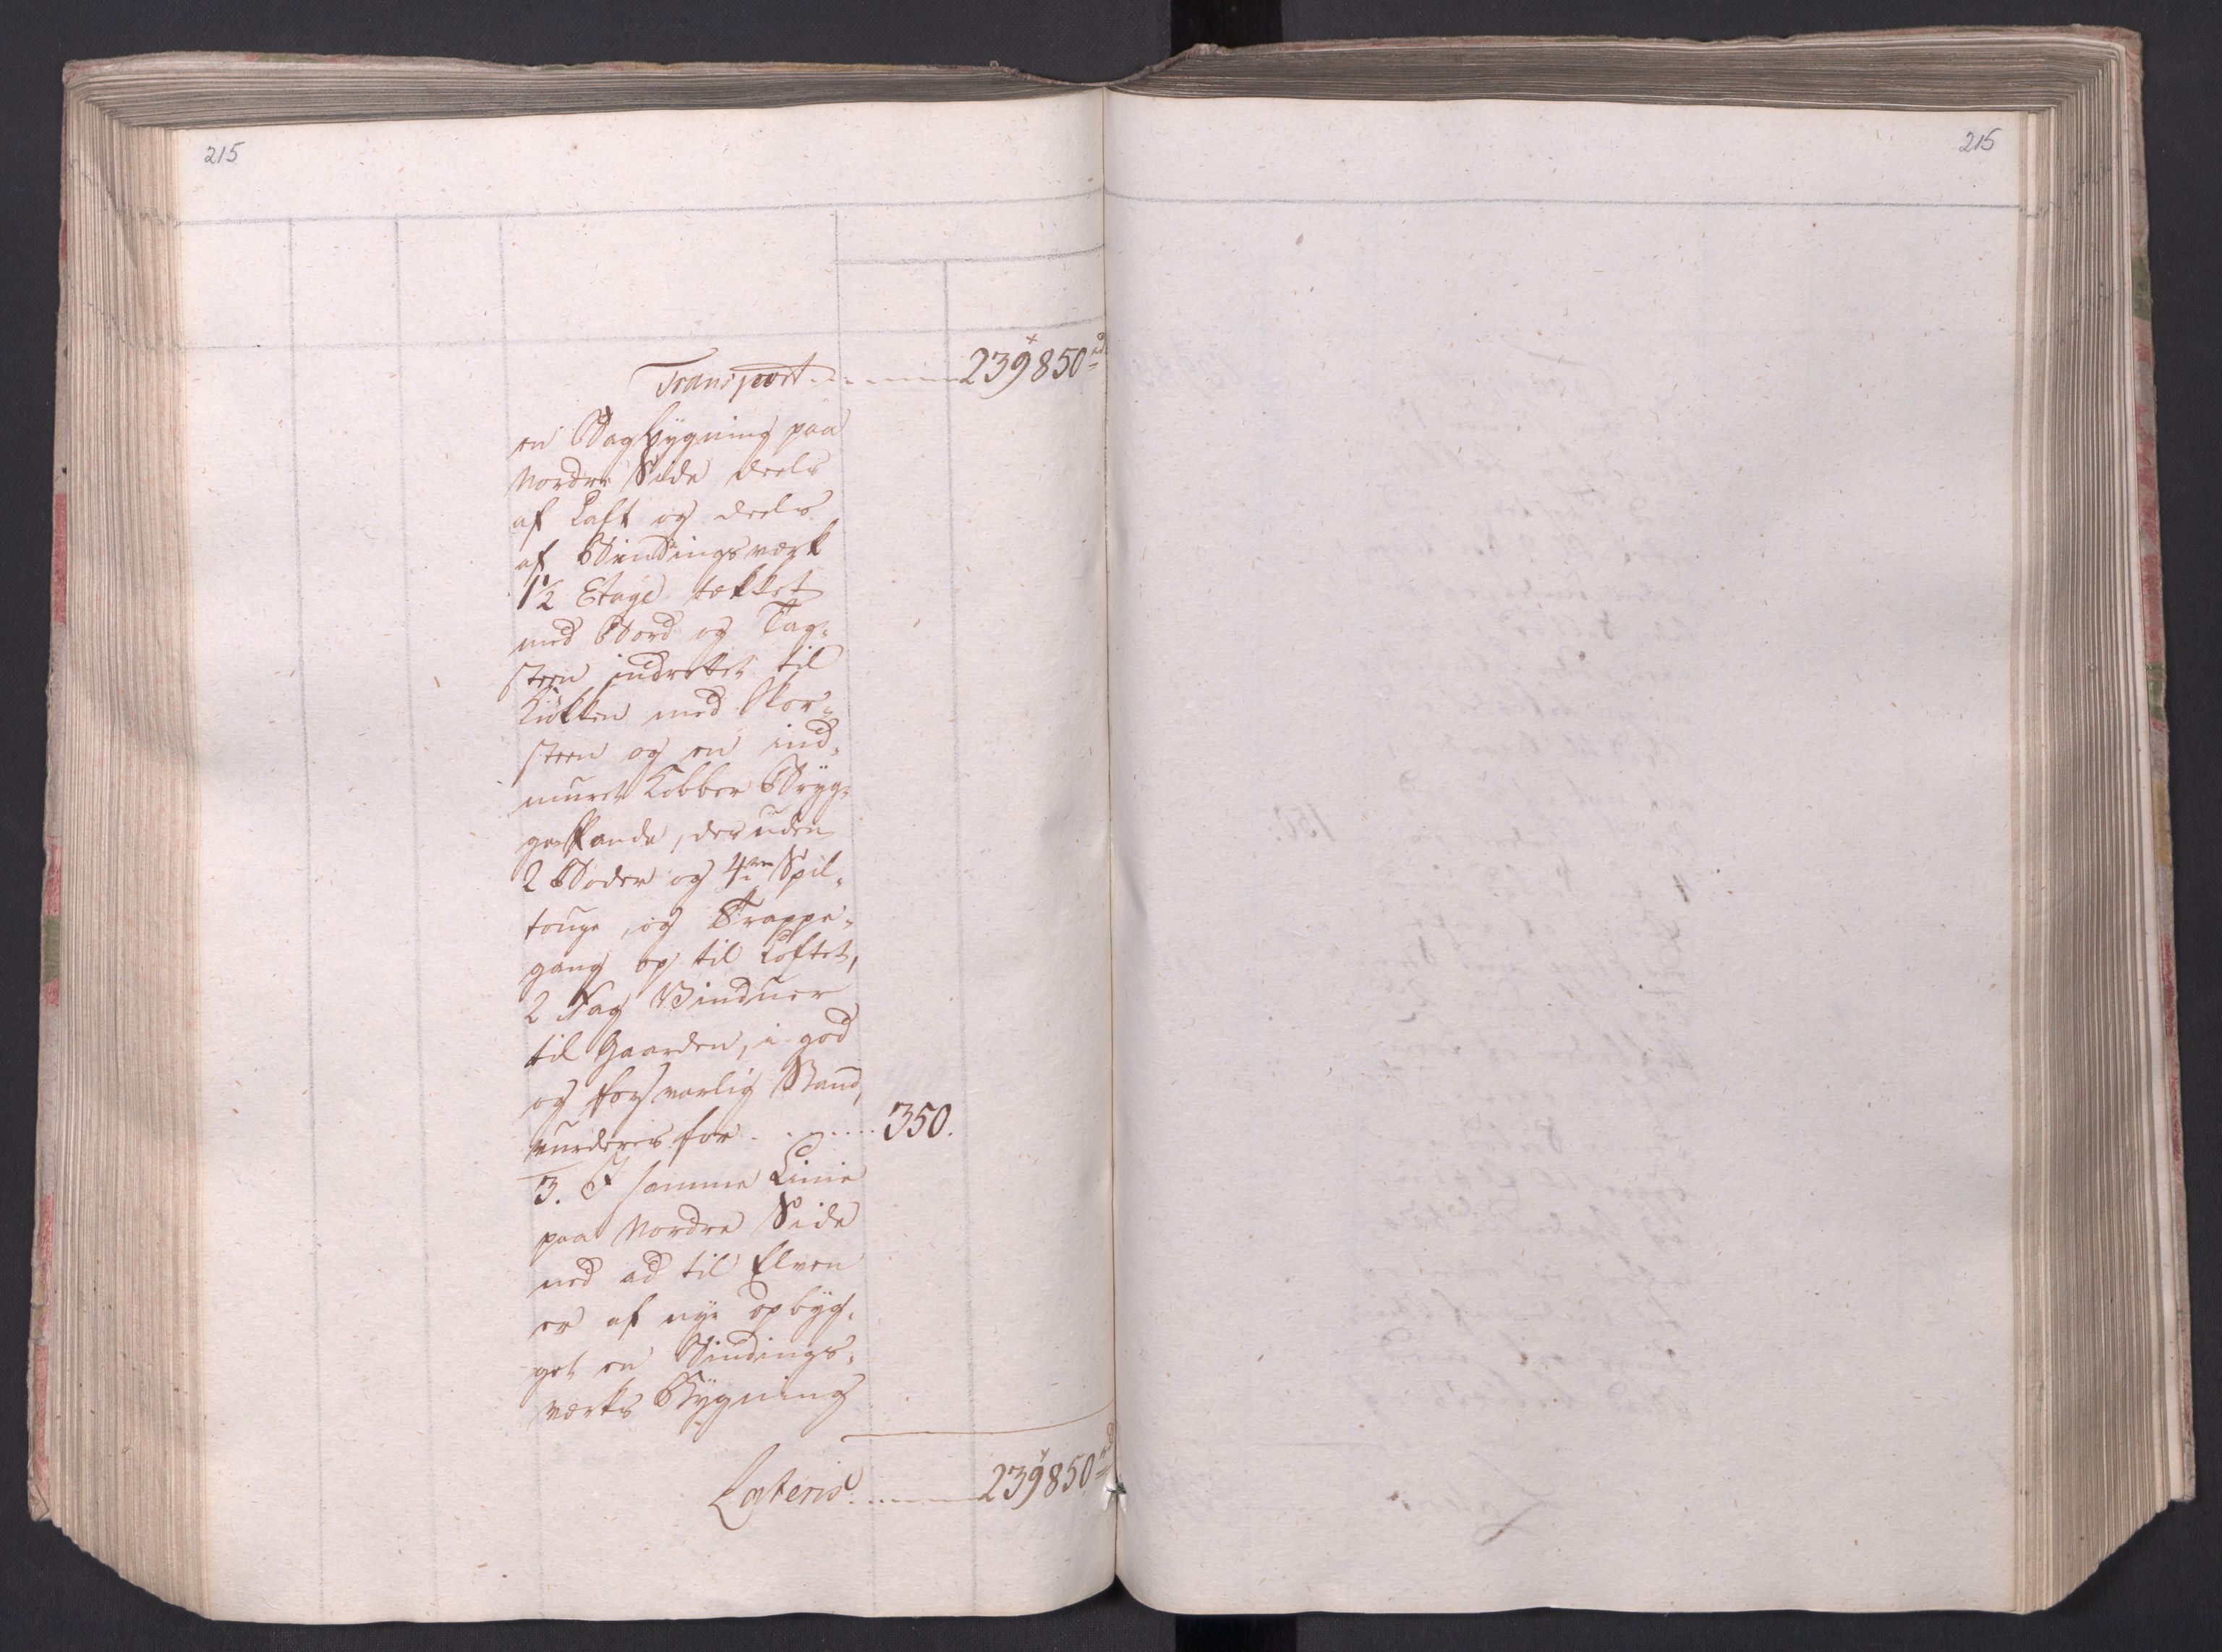 215
215
Transport ........ 239850 rd
en Bagbygning paa
Nordre Side deels
af Laft og deels
af Bindingsværk
1½ Etage tækket
med Bord og Tag-
steen indrettet til
Kiökken med Skor-
steen og en ind-
muret Kobber Bryg-
gepande, desuden
2 Boder og 4re Spil-
touge, og Trappe-
gang op til Loftet,
2 Fag Vinduer
til Gaarden, i god
og forsvarlig Stand,
vurderes for ........ 350.
3. I samme Linie
paa Nordre Side
ned ad til Elven
er af nye opbyg-
get en Bindings-
værks Bygning
Lateris ........ 239850 rd